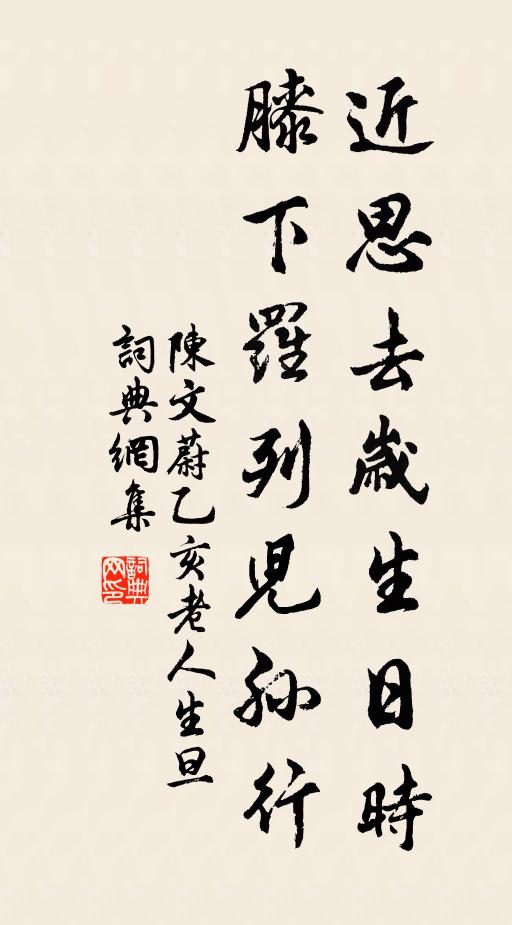 近思去歲生日時
膝下羅列兒孙行
陳文蔚乙亥老人生旦
詞典網集
詞典网印